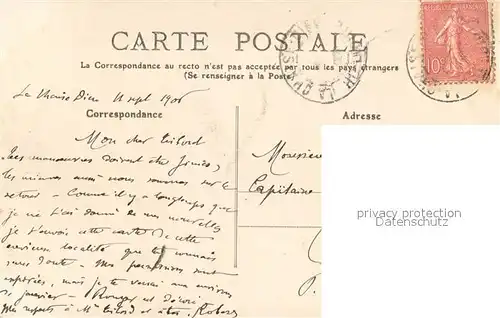 CARTE POSTALE
La Correspondance au recto n'est pas acceptée par tous les pays étrangers
(Se renseigner à la Poste)
RÉPUBLIQUE FRANÇAISE
10c
La Chaise Dieu 11 sept 1906
Correspondance
Adresse
Mon cher
Les manœuvres doivent être finies,
les miennes aussi nous sommes sur le
retour - Comme il y a longtemps que
je ne t'ai donné de mes nouvelles
je t'envoie cette carte de cette
curieuse localité que tu connais
sans doute - Mes permissions sont
espérées, mais je te verrai aux environs
de janvier -
Mes respects à Me et à toi.
Monsieur
Capitaine
privacy protection
Datenschutz